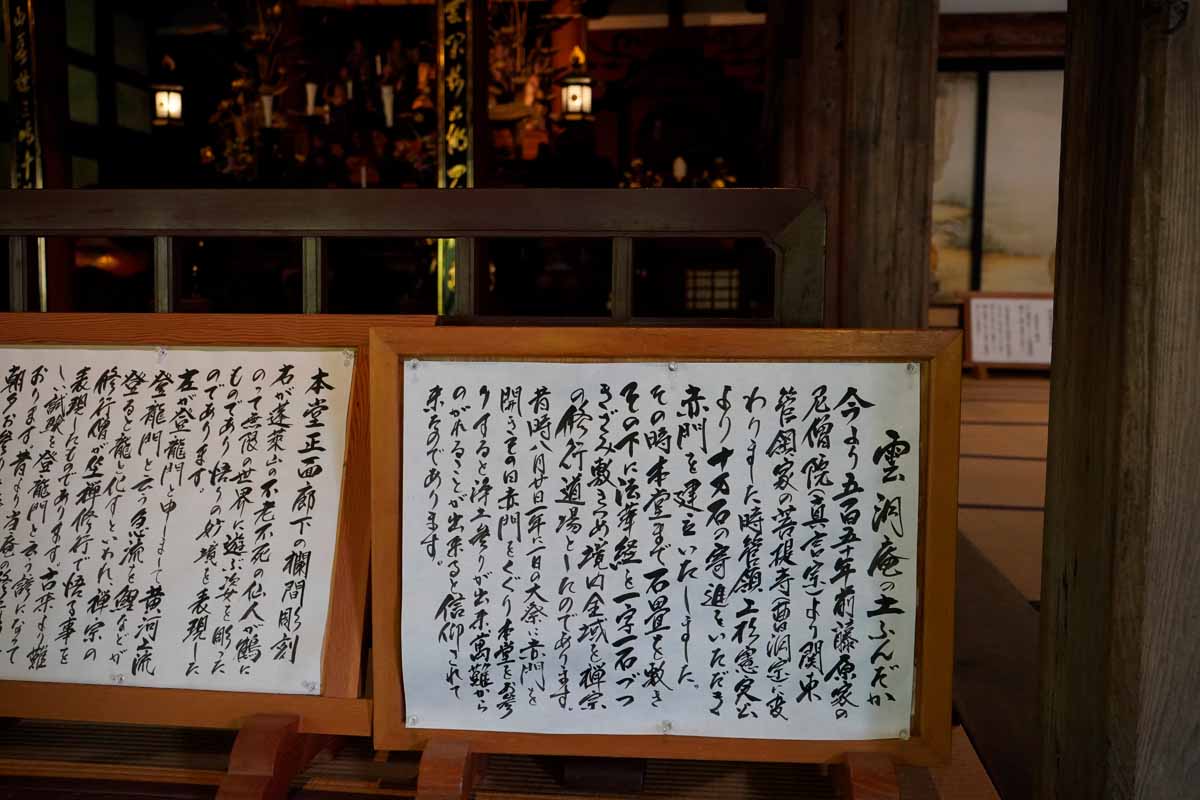 雲洞庵の土ふんだか
今より五百五十年前藤原家の
尼僧院(真言宗)より関東
管領家の菩提寺(曹洞宗)に変
わりました時管領上杉憲実公
より十万石の寄進をいただき
赤門を建立いたしました。
その時本堂まで石畳を敷き
その下に法華経を一字一石づつ
きざみ敷きつめ境内全域を禅宗
の修行道場としたのであります。
昔時八月廿日年に一日の大祭に赤門を
開きその日赤門をくぐり本堂をお参
りすると浄土参りが出来萬難から
のがれることが出来ると信仰されて
来たのであります。
本堂正面廊下の欄間彫刻
右が蓬莱山の不老不死の仙人が鶴に
のって無限の世界に遊ぶ姿を彫った
ものであり悟りの妙境を表現した
のであります。
左が登龍門と申しまして黄河上流
登龍門と云う急流を鯉などが
登ると龍と化すといわれ、禅宗の
修行僧が坐禅修行で悟る事を
表現したものであります。古来より難
しい試験を登龍門と云う諺になって
おります。昔より当庵の修行
朝夕お参り